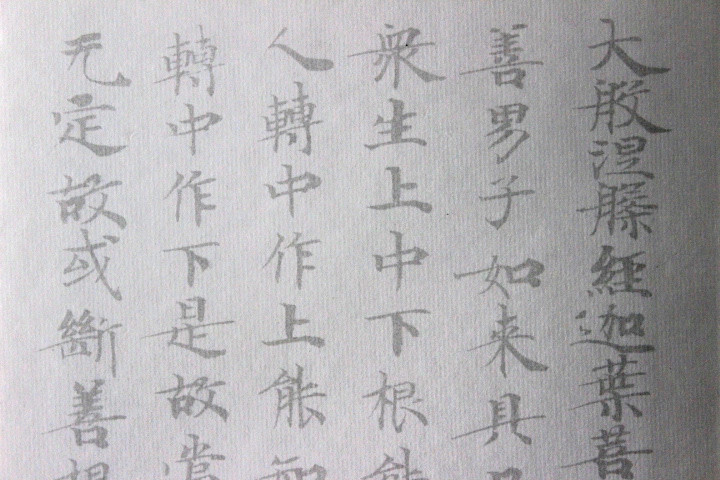 大般涅槃經迦葉菩
善男子如来具
衆生上中下根能
人轉中作上能知
轉中作下是故當
无定故或斷善根